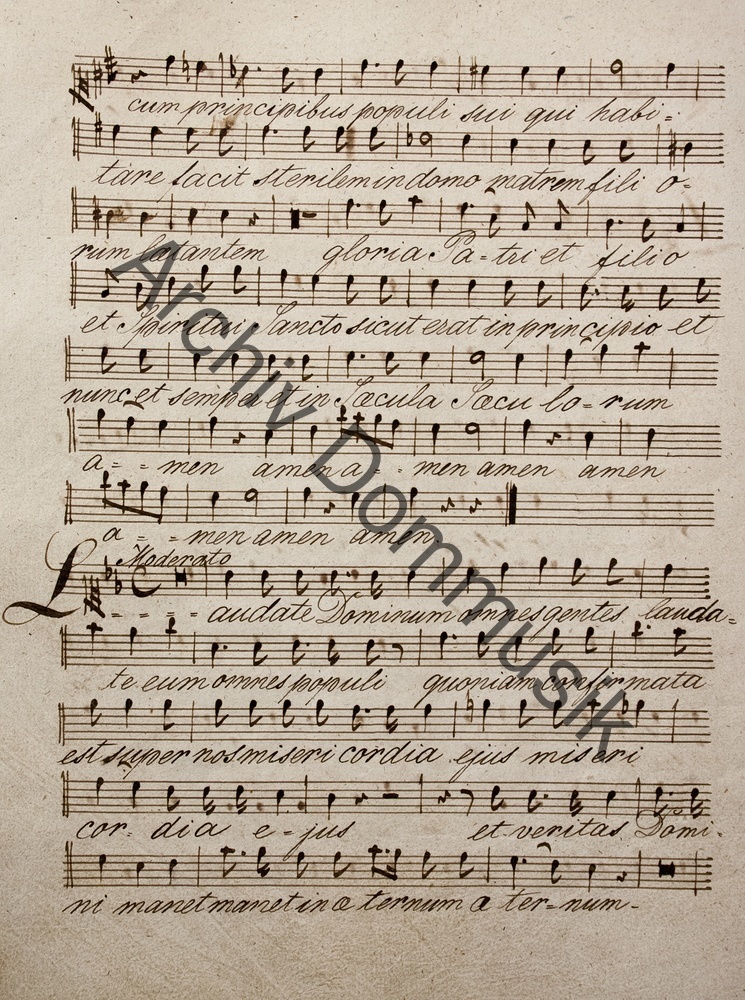 cum principibus populi sui qui habi=
tare facit sterilem in domo matrem fili o-
rum lætantem gloria Pa-tri et filio
et Spiritui Sancto sicut erat in principio et
nunc et semper et in Sæcula Sæcu lo=rum
a= - men amen a= - men amen amen
a= = men amen amen.
Moderato
L - = - = audate Dominum omnes gentes lauda=
te eum omnes populi quoniam confirmata
est super nos miseri cordia ejus miseri
cor- dia e-jus et veritas Domi-
ni manet manet in æ ternum æ ter=num-
Archiv Dommusik